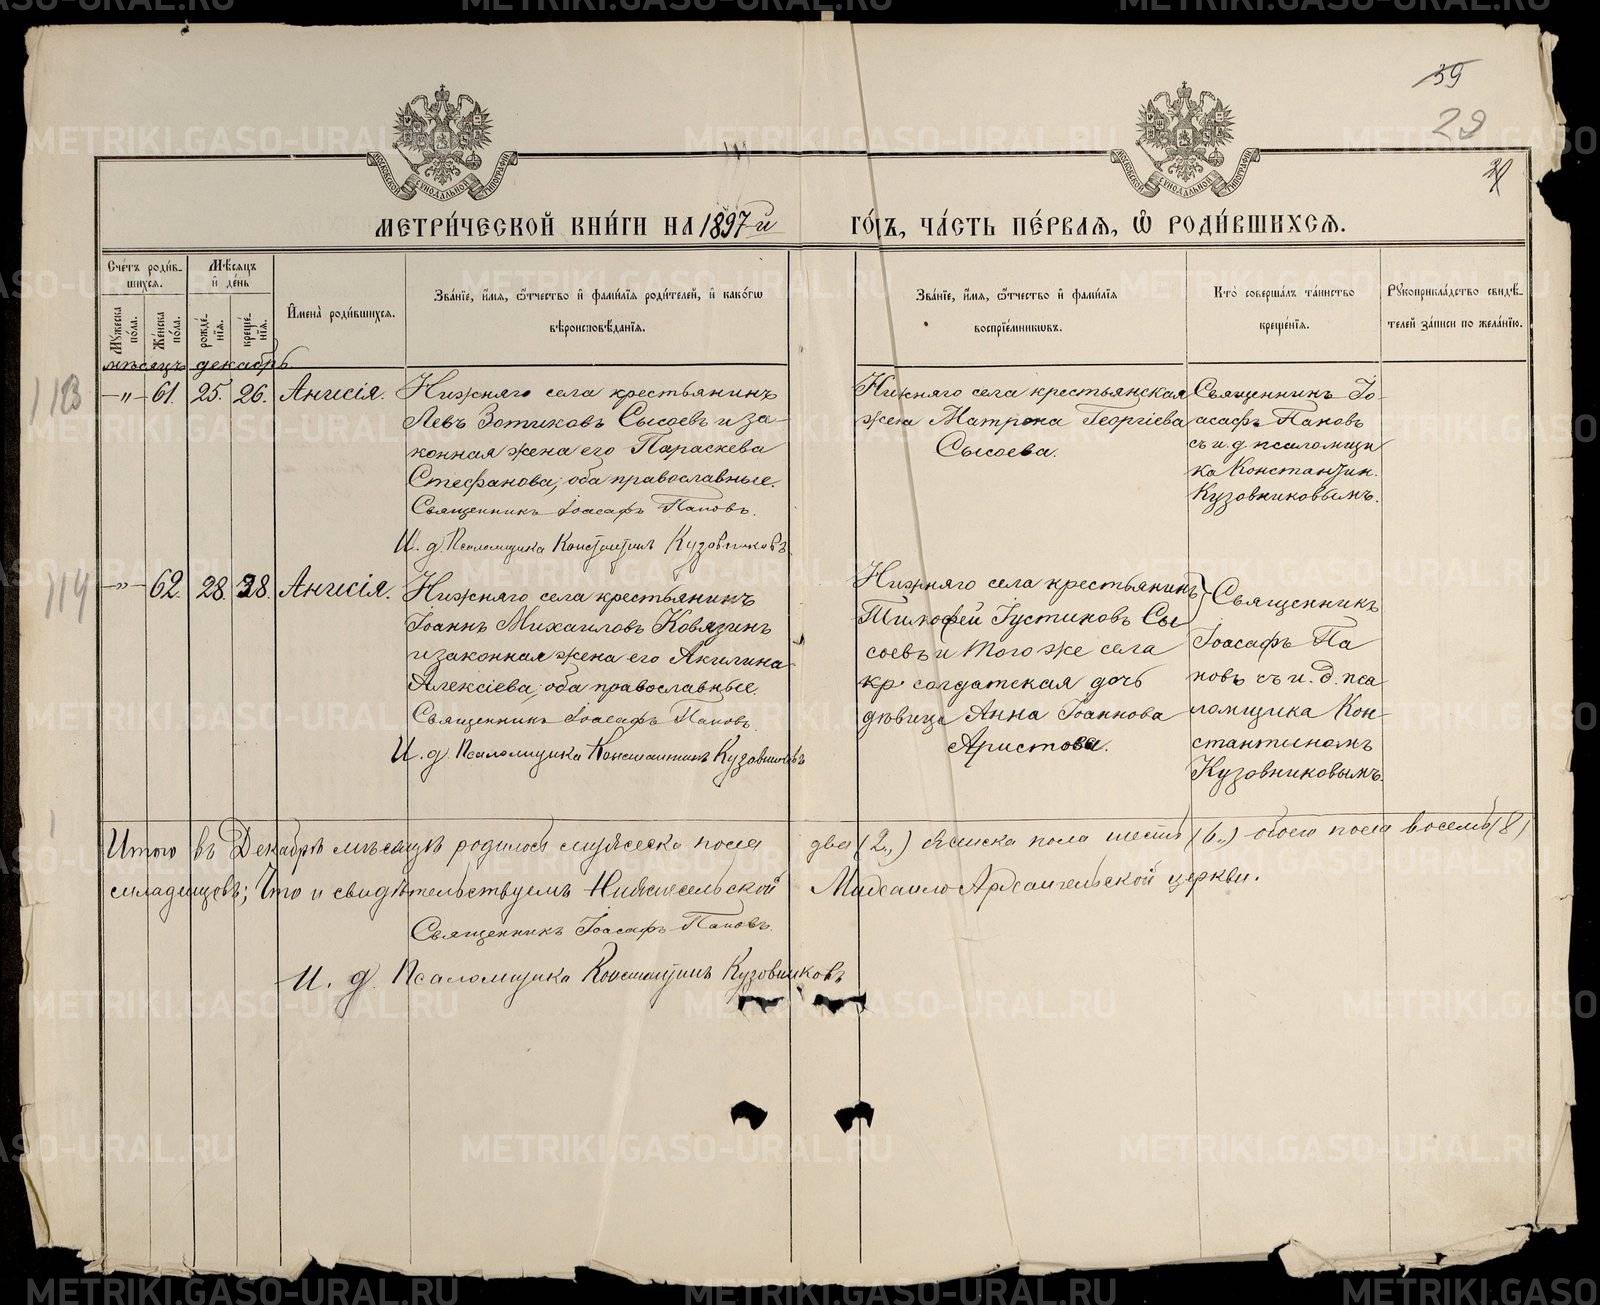 39
29
МЕТРИ́ЧЕСКОЙ КНИ́ГИ НА 1897й ГО́ДЪ, ЧА́СТЬ ПЕ́РВАЯ, Ѽ РОДИ́ВШИХСЯ.
МОСКОВСКОЙ СѴНОДАЛЬНОЙ ТИПОГРАФІИ
МОСКОВСКОЙ СѴНОДАЛЬНОЙ ТИПОГРАФІИ
Сче́тъ роди́в-
шихся.
Мꙋ́жеска пола.
Же́нска по́ла.
Мѣ́сяцъ и҆ де́нь
рожде́-
нія.
креще́-
нія.
И҆мена̀ роди́вшихся.
Зва́ніе, и҆́мя, ѻ҆́тчество и҆ фами́лія роди́телей, и҆ како́гѡ
вѣроисповѣ́данія.
Зва́ніе, и҆́мя, ѻ҆́тчество и҆ фами́лія
воспріе́мникѡвъ.
Кто̀ соверша́лъ та́инство
креще́нія.
Рꙋкоприкла́дство свидѣ́-
телей за́писи по жела́нію.
мѣсяцъ декабрь
113
—"— 61. 25. 26. Анисія.
Нижняго села крестьянинъ
Левъ Зотиковъ Сысоевъ и за-
конная жена его Параскева
Стефанова; оба православные.
Священникъ Іоасафъ Паповъ.
И. д. Псаломщика Константинъ Кузовниковъ
Нижняго села крестьянская
жена Матрона Георгіева
Сысоева.
Священникъ Іо-
асафъ Паповъ
съ и. д. псаломщи
ка Константин.
Кузовниковымъ.
114
—"— 62. 28. 28. Анисія.
Нижняго села крестьянинъ
Іоаннъ Михаиловъ Ковязинъ
и законная жена его Акилина
Алексіева; оба православные.
Священникъ Іоасафъ Паповъ
И. д. Псаломщика Константинъ Кузовниковъ
Нижняго села крестьянинъ
Тимофей Іустиновъ Сы
соевъ и того же села
кр. солдатская дочь
дѣвица Анна Іоаннова
Аристова.
Священникъ
Іоасафъ Па
повъ съ и. д. пса
ломщика Кон-
стантиномъ
Кузовниковымъ.
Итого въ Декабрѣ мѣсяцѣ родилось мужеска пола два (2,,) женска пола шесть (6,,) обоего пола восемь (8)
младенцовъ; Что и свидѣтельствуемъ Нижнесельской Михаило-Архангельской церкви.
Священникъ Іоасафъ Паповъ.
И. д. Псаломщика Константинъ Кузовниковъ
METRIKI.GASO-URAL.RU